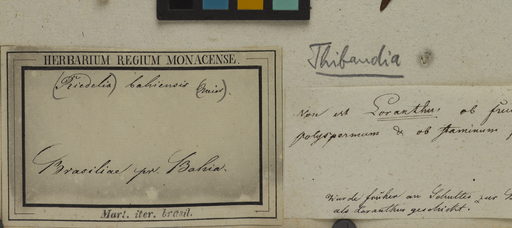 HERBARIUM REGIUM MONACENSE.
(Riedelia) bahiensis
Brasiliae pr. Bahia.
Mart. iter. brasil.
Thibaudia
Non est Loranthus, ob
polyspermum & ob staminum
Wurde früher an Schultes zur
als Loranthus geschickt.